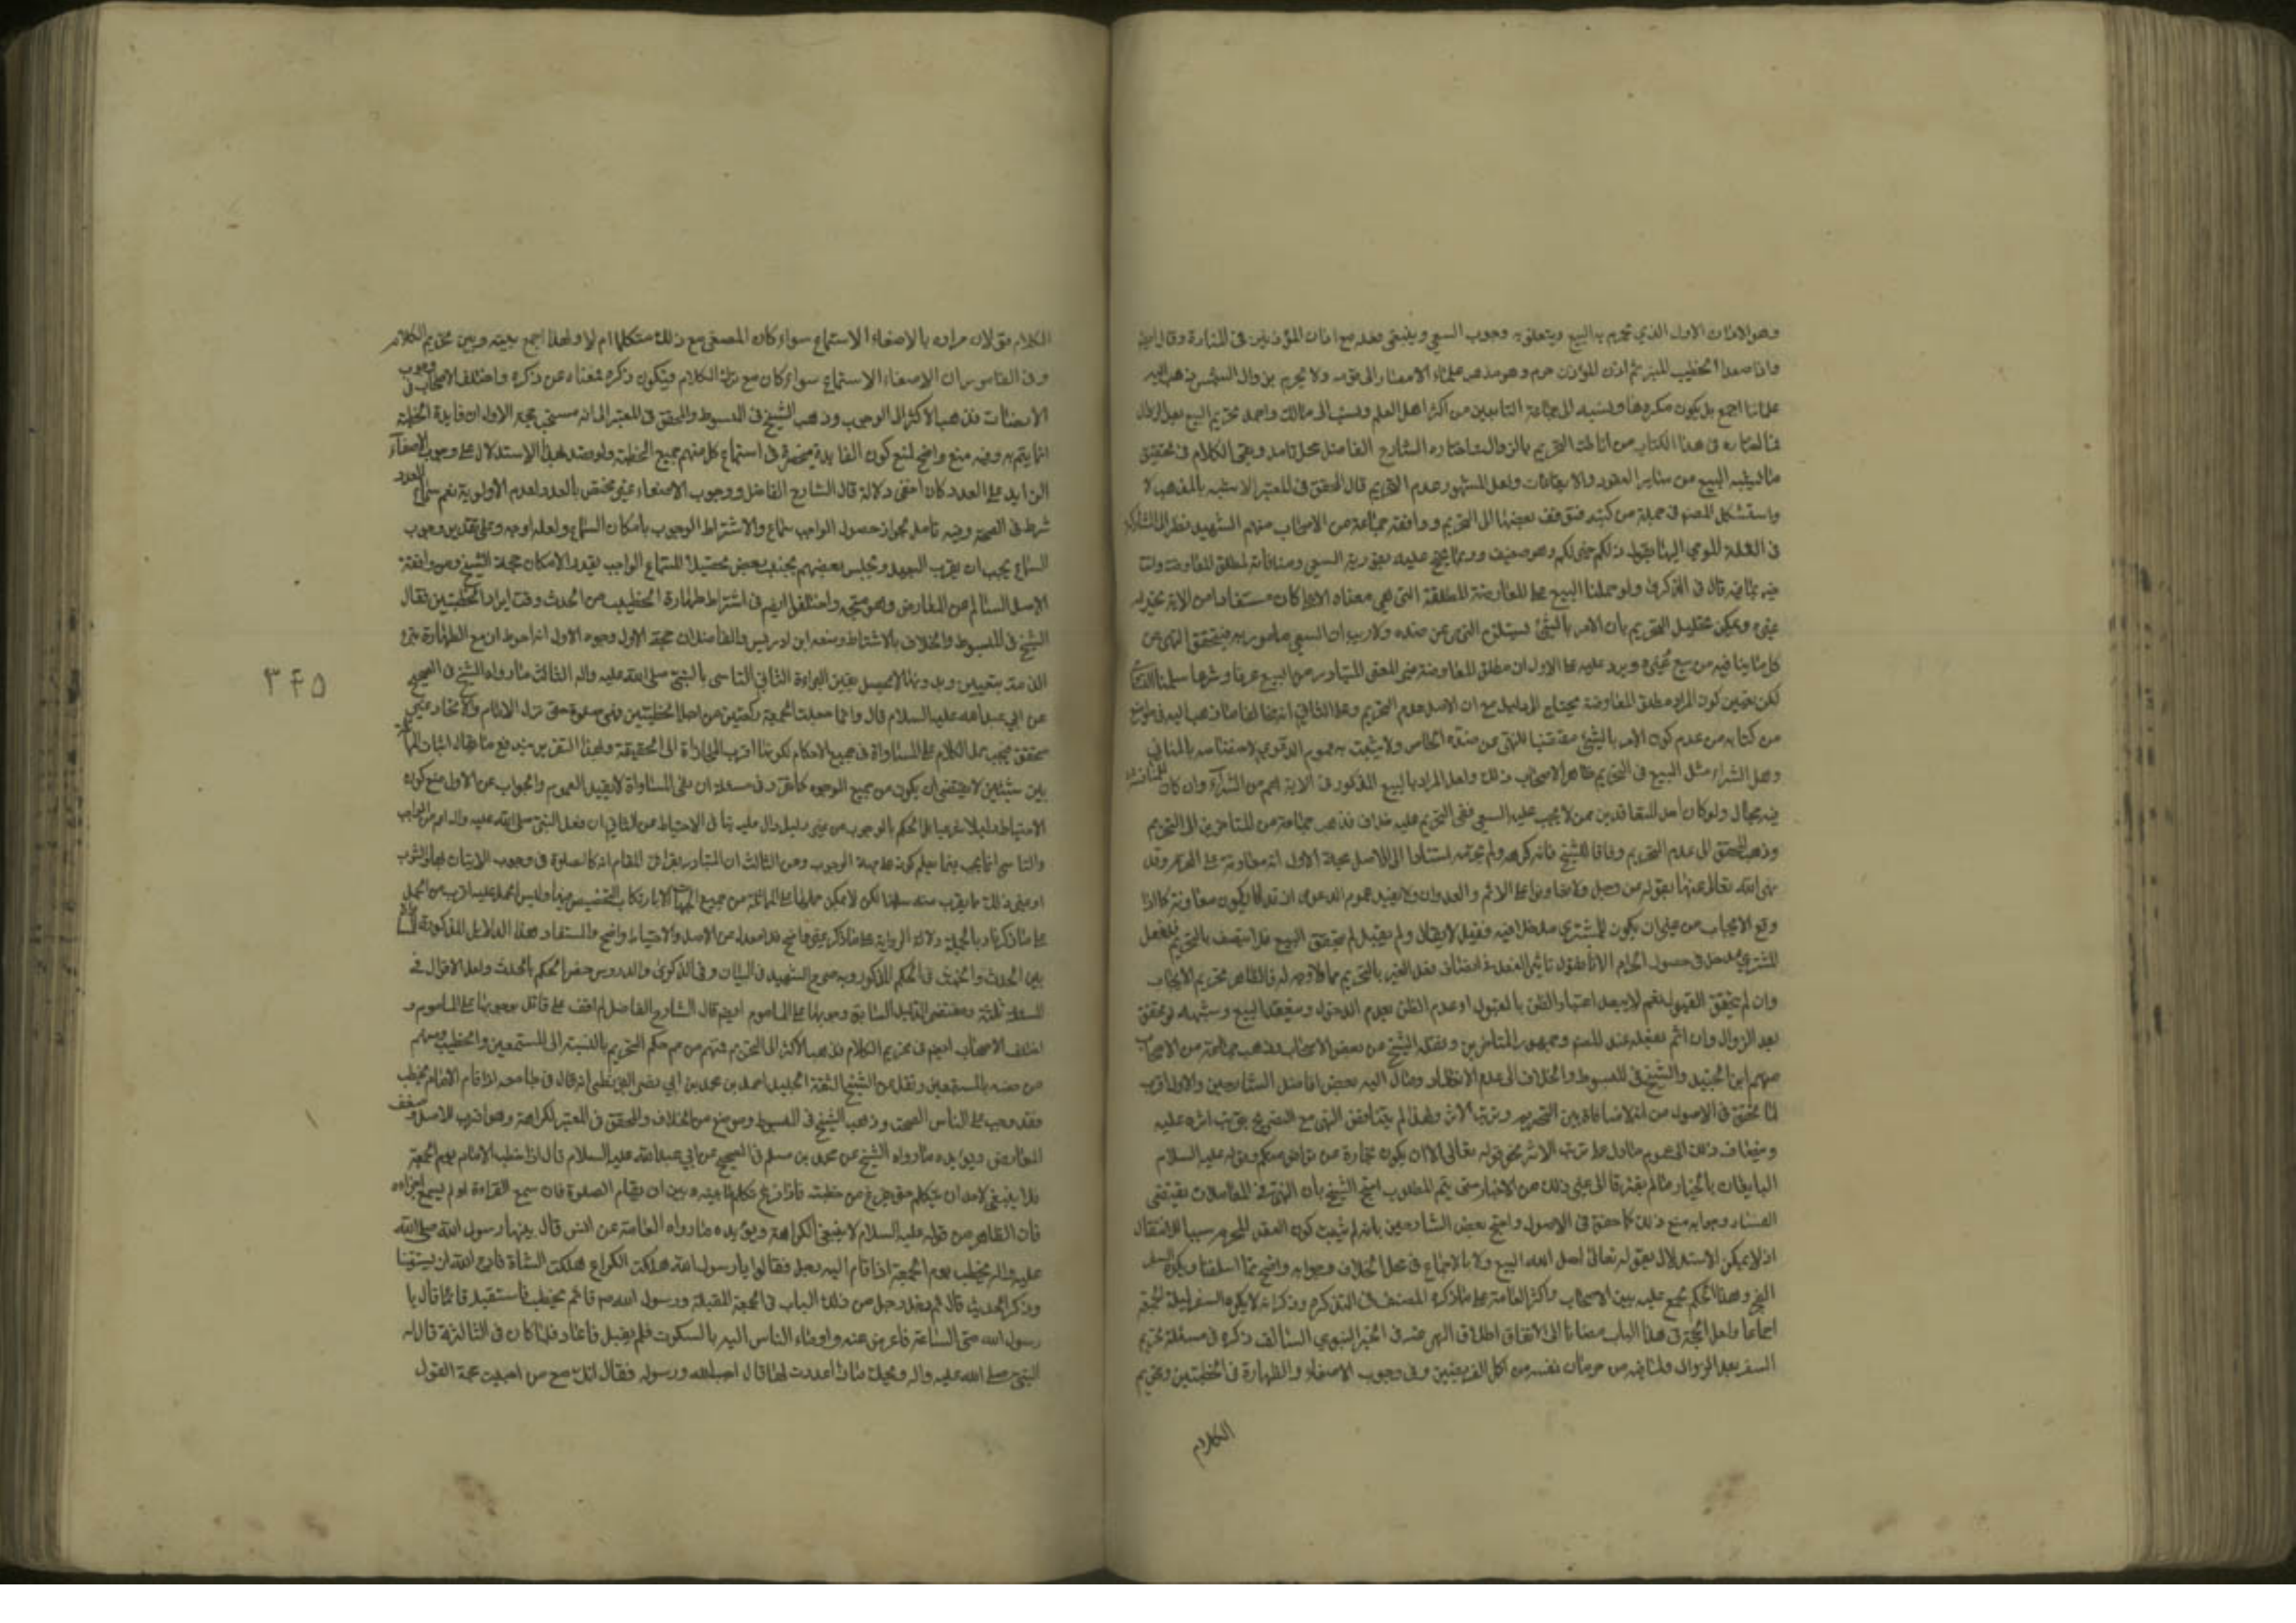 وهو الاذان الاول الذي يحرم به البيع ويتعلق به وجوب السعي وينبغي فعله مع اذان المؤذنين في المنارة وقال ايضا
واذا صعد الخطيب المنبر ثم اذن المؤذن حرم وهو مذهب علماء الامصار الى قوله ولا يحرم بزوال الشمس ذهب اليه
علمائنا اجمع بل يكون مكروها ونسبه الى جماعة التابعين من اكثر اهل العلم ونسب الى مالك واحمد تحريم البيع بعد الزوال
فما اختاره في هذا الكتاب من اناطة التحريم بالزوال واختاره الشارح الفاضل محل تامل وبقي الكلام في تحقيق
ما يشبه البيع من سائر العقود والايقاعات ولعل المشهور عدم التحريم قال المحقق في المعتبر الاشبه بالمذهب لا
واستشكل المصنف في جملة من كتبه فتوقف بعضها الى التحريم ووافقه جماعة من الاصحاب منهم الشهيد نظرا الى المشاركة
في العلة المومى اليها بقوله ذلكم خير لكم وهو ضعيف وربما يحتج عليه بفورية السعي ومنافاته لمطلق المعاوضة ولنا
فيه تامل قال في الذكرى ولو حملنا البيع على المعاوضة المطلقة التي هي معناه الاصلي كان مستفادا من الاية تحريم
غيره ويمكن تعليل التحريم بان الامر بالشئ يستلزم النهي عن ضده ولا ريب ان السعي مامور به فيتحقق النهي عن
كل ما ينافيه من بيع وغيره ويرد عليه على الاول ان مطلق المعاوضة غير المعنى المتبادر من البيع عرفا وشرعا سلمنا
لكن تعيين كون المراد مطلق المعاوضة يحتاج الى دليل مع ان الاصل عدم التحريم وعلى الثاني
من كتابه من عدم كون الامر بالشئ مقتضيا للنهي عن ضده الخاص ولا يثبت به عموم الدعوى لاختصاصه بالمنافي
وهل الشراء مثل البيع في التحريم ظاهر الاصحاب ذلك ولعل المراد بالبيع المذكور في الاية اعم من الشراء وان كان للمناقشة
فيه مجال ولو كان احد المتعاقدين ممن لا يجب عليه السعي ففي التحريم عليه خلاف فذهب جماعة من المتاخرين الى التحريم
وذهب المحقق الى عدم التحريم وفاقا للشيخ فانه كرهه ولم يحرمه استنادا الى الاصل حجة الاول انه معاونة على المحرم وقد
نهى الله تعالى عنها بقوله عز وجل ولا تعاونوا على الاثم والعدوان ولا يفيد عموم الدعوى اذ قد لا يكون معاونة كما اذا
وقع الايجاب من غير ان يكون للمشتري مدخلا فيه فقيل لا يقال ولم يقبل لم يتحقق البيع فلا يتصف بالتحريم ففعل
المشتري مدخل في حصول الحرام لانا نقول تاثير الفعل في اتصاف فعل الغير بالتحريم مما لا وجه له فالظاهر تحريم الايجاب
وان لم يتحقق القبول نعم لا يبعد اعتبار الظن بالقبول او عدم الظن بعدم الدخول وينعقد البيع وشبهه لو تحقق
بعد الزوال وان اثم بفعله عند المصنف وجمهور المتاخرين ونقله الشيخ عن بعض الاصحاب وذهب جماعة من الاصحاب
منهم ابن الجنيد والشيخ في المبسوط والخلاف الى عدم الانعقاد ومال اليه بعض افاضل الشارحين والاول اقرب
لما تحقق في الاصول من انه لا منافاة بين التحريم وترتب الاثر ولهذا لم يتناقض النهي مع التصريح بترتب اثره عليه
ويضاف ذلك الى عموم ما دل على ترتب الاثر نحو قوله تعالى الا ان يكون تجارة عن تراض منكم وقوله عليه السلام
البايعان بالخيار ما لم يفترقا الى غير ذلك من الاخبار حتى يتم المطلوب احتج الشيخ بان النهي في المعاملات يقتضي
الفساد وجوابه منع ذلك كما حقق في الاصول واحتج بعض الشارحين بانه لم يثبت كون العقد المحرم سببا للانتقال
اذ لا يمكن الاستدلال بقوله تعالى احل الله البيع ولا بالاجماع في محل الخلاف وجوابه واضح مما اسلفنا ويكره السفر
الفجر وهذا الحكم مجمع عليه بين الاصحاب واكثر العامة على ما ذكره المصنف في التذكرة وذكر انه لا يكره السفر ليلة الجمعة
اجماعا ولعل الحجة في هذا الباب مضافا الى الاتفاق اطلاق النهي عنه في الخبر النبوي السالف ذكره في مسئلة تحريم
السفر بعد الزوال ولما فيه من حرمان نفسه من اكمل الفريضتين وفي وجوب الاصغاء والطهارة في الخطبتين وتحريم
الكلام
الكلام قولان مراده بالاصغاء الاستماع سواء كان المصغي مع ذلك متكلما ام لا ولهذا اجمع بينه وبين تحريم الكلام
وفي القاموس ان الاصغاء الاستماع سواء كان مع ترك الكلام فيكون ذكره مغناه عن ذكره واختلف الاصحاب في وجوب
الانصات فذهب الاكثر الى الوجوب وذهب الشيخ في المبسوط والمحقق في المعتبر الى انه مستحب حجة الاول ان فايدة الخطبة
انما يتم به وفيه منع واضح لمنع كون الفايدة منحصرة في استماع كل منهم جميع الخطبة ولو قصد بهذا الاستدلال على وجوب الاصغاء
الزايد على العدد كان اخفى دلالة قال الشارح الفاضل ووجوب الاصغاء غير مختص بالعدد لعدم الاولوية نعم سماع العدد
شرط في الصحة وفيه تامل لجواز حصول الواجب سماع والاشتراط الوجوب بامكان السماع ولعله اوجه وعلى تقدير وجوب
السماع يجب ان يقرب البعيد ويجلس بعضهم بجنب بعض تحصيلا للسماع الواجب بقدر الامكان حجة الشيخ ومن وافقه
الاصل السالم عن المعارض وهو متجه واختلفوا ايضا في اشتراط طهارة الخطيب من الحدث وقت ايراد الخطبتين فقال
الشيخ في المبسوط والخلاف بالاشتراط ومنعه ابن ادريس والفاضلان حجة الاول وجوه الاول انه احوط اذ مع الطهارة تبرء
الذمة بتعيين وبدونها لا يحصل يقين البراءة الثاني التاسي بالنبي صلى الله عليه واله الثالث ما رواه الشيخ في الصحيح
عن ابي عبدالله عليه السلام قال وانما جعلت الجمعة ركعتين من اجل الخطبتين فهي صلوة حتى نزل الامام والاتحاد غير
متحقق فيجب حمل الكلام على المساواة في جميع الاحكام لكونها اقرب المجازات الى الحقيقة وبهذا التقرير يندفع ما يقال
بين شيئين لا يقتضي ان يكون من جميع الوجوه كما تقرر في مسئلة ان نفي المساواة لا يفيد العموم والجواب عن الاول منع كون
الاحتياط دليلا شرعيا على الحكم بالوجوب من غير دليل دال عليه وعن الثاني ان فعل النبي صلى الله عليه واله اعم من الواجب
والتاسي انما يجب فيما يعلم كونه على جهة الوجوب وعن الثالث ان المتبادر بقرائن المقام انه كالصلوة في وجوب الاتيان بها
او غير ذلك ما يقرب منه سلمنا لكن لا يمكن حملها على المماثلة من جميع الجهات الا بارتكاب التخصيص فيها
على ما ذكرناه وبالجملة دلالة الرواية على ما ذكر غير واضح والمستفاد من هذه الدلايل المذكورة
بين الحدث والخبث في الحكم المذكور وبه صرح الشهيد في البيان وفي الذكرى والدروس خص الحكم بالحدث ولعل الاقوال في
المسئلة ثلثة ومقتضى الدليل السابق وجوبها على الماموم ايضا قال الشارح الفاضل لم اقف على قائل بوجوبها على الماموم و
اختلف الاصحاب ايضا في تحريم الكلام فذهب الاكثر الى التحريم فمنهم من عمم حكم التحريم بالنسبة الى المستمعين والخطيب ومنهم
من خصه بالمستمعين ونقل عن الشيخ الثقة الجليل احمد بن محمد بن ابي نصر البزنطي انه قال في جامعه اذا قام الامام يخطب
فقد وجب على الناس الصمت وذهب الشيخ في المبسوط وموضع من الخلاف والمحقق في المعتبر الى الكراهة وهو اقرب للاصل وضعف
المعارض ويؤيده ما رواه الشيخ عن محمد بن مسلم في الصحيح عن ابي عبدالله عليه السلام قال اذا خطب الامام يوم الجمعة
فلا ينبغي لاحد ان يتكلم حتى يفرغ من خطبته فاذا فرغ تكلم ما بينه وبين ان يقام الصلوة فان سمع القراءة او لم يسمع اجزاءه
فان الظاهر من قوله عليه السلام لا ينبغي الكراهة ويؤيده ما رواه العامة عن انس قال بينما رسول الله صلى الله
عليه واله يخطب يوم الجمعة اذا قام اليه رجل فقال يا رسول الله هلكت الكراع هلكت الشاة فادع الله ان يسقينا
وذكر الحديث قال ثم دخل رجل من ذلك الباب في الجمعة المقبلة ورسول الله ص قائم يخطب فاستقبله قائما قال يا
رسول الله متى الساعة فاعرض عنه واومأ الناس اليه بالسكوت فلم يقبل فاعاد فلما كان في الثالثة قال له
النبي صلى الله عليه واله ويحك ماذا اعددت لها قال احب الله ورسوله فقال انك مع من احببت حجة القول
۳۴۵